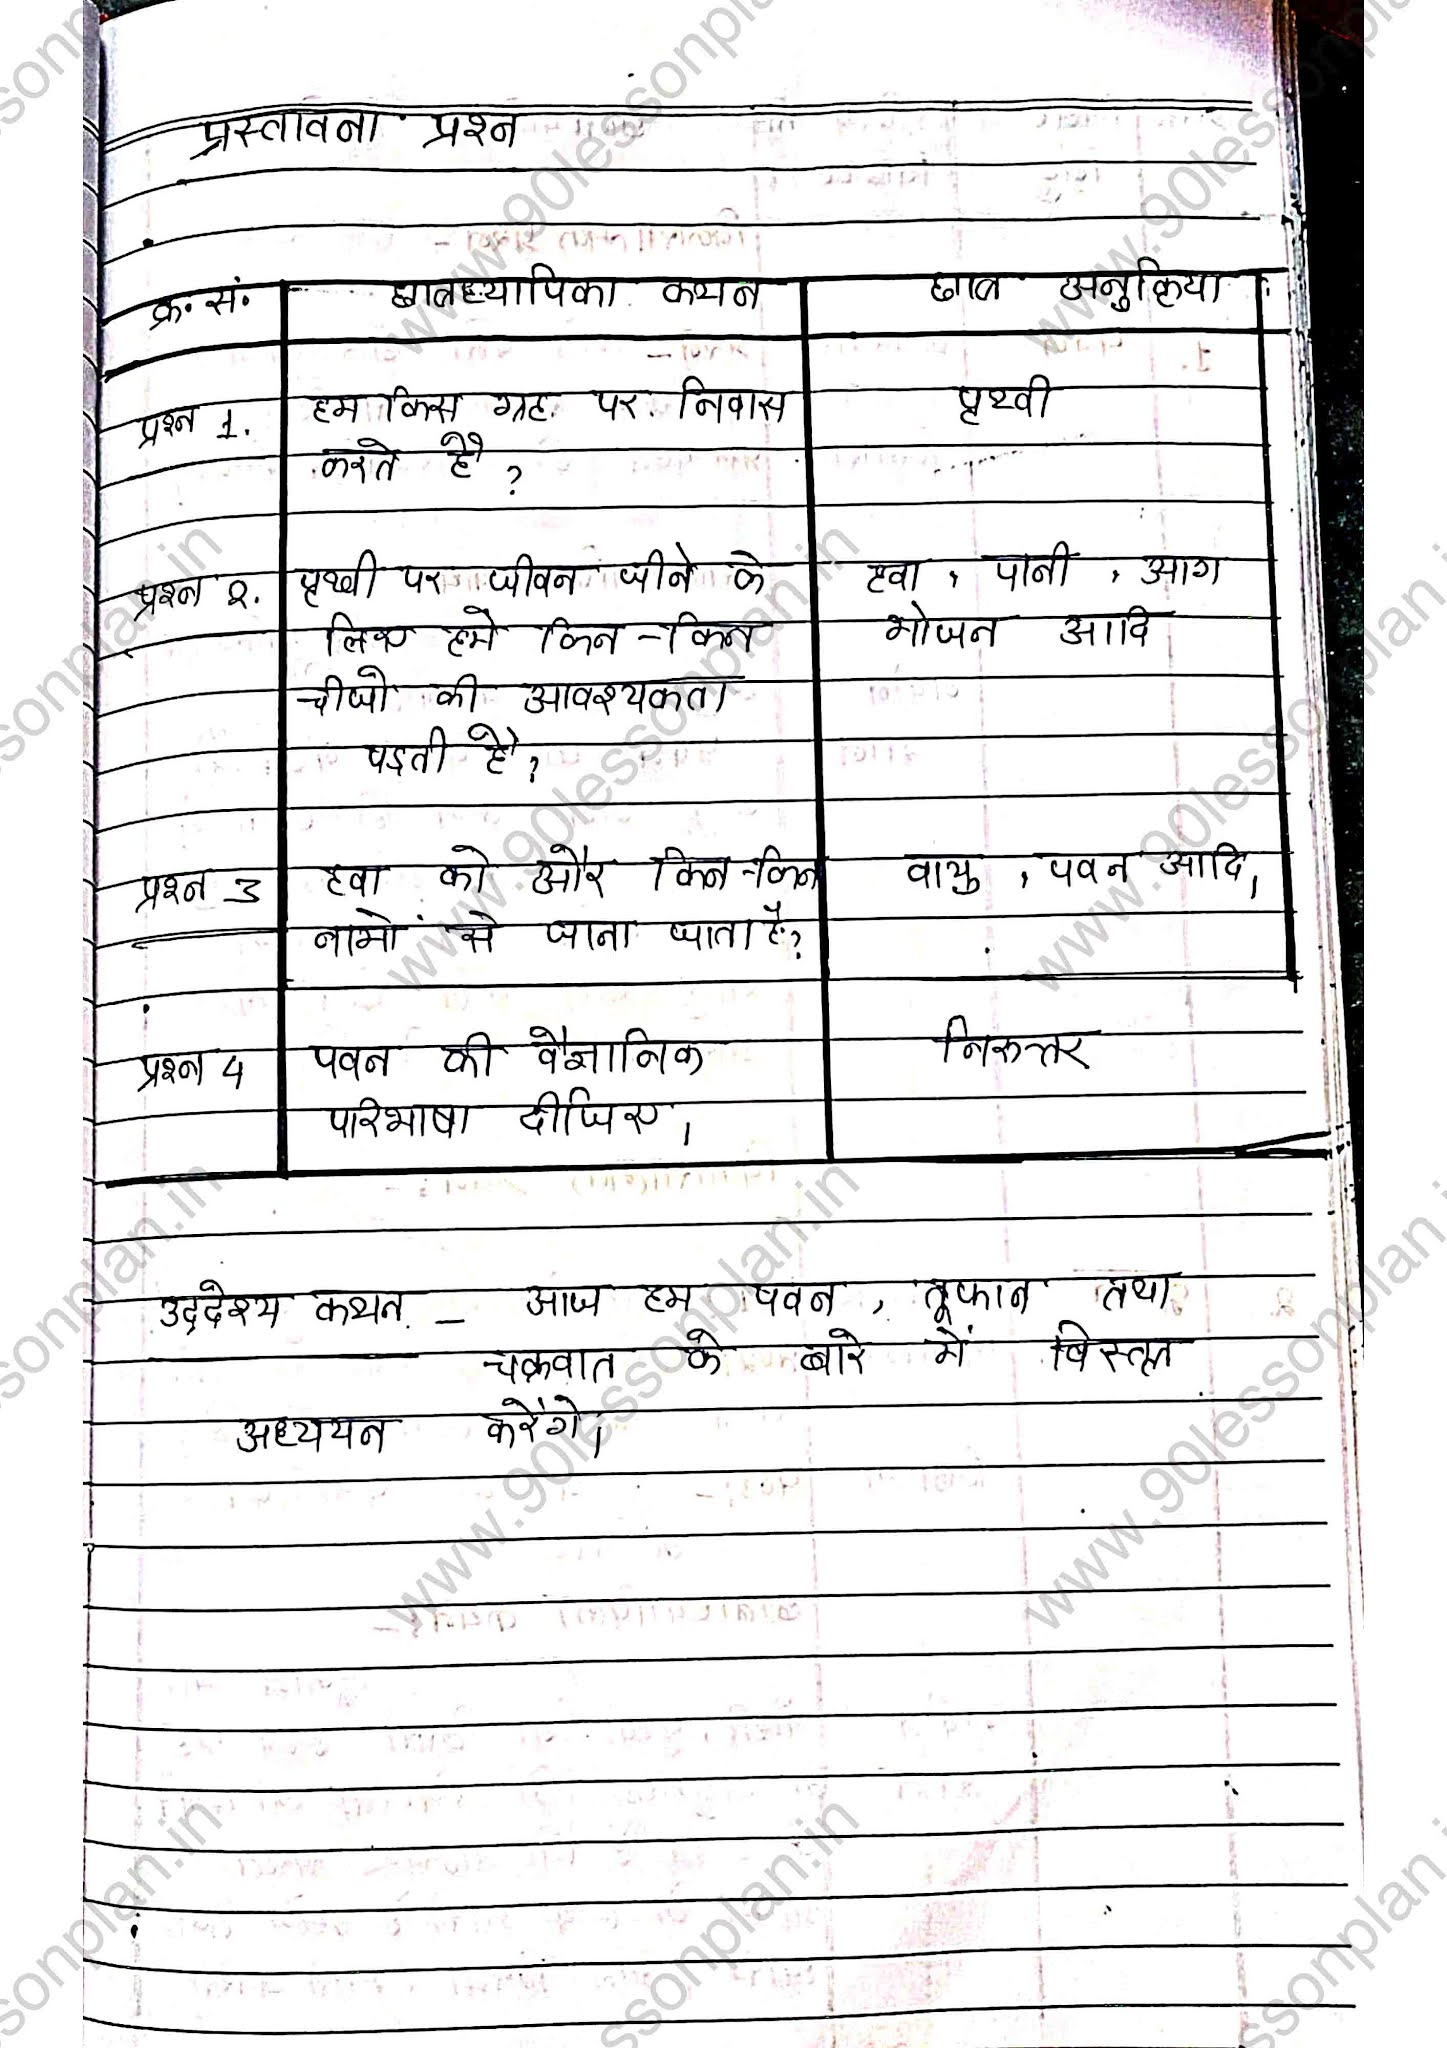 प्रस्तावना प्रश्न
क्र. सं. छात्राध्यापिका कथन छात्र अनुक्रिया
प्रश्न 1. हम किस ग्रह पर निवास पृथ्वी
करते है ?
प्रश्न 2. पृथ्वी पर जीवन जीने के हवा , पानी , आग
लिए हमे किन - किन भोजन आदि
चीजो की आवश्यकता
पड़ती है ?
प्रश्न 3 हवा को और किन - किन वायु , पवन आदि।
नामों से जाना जाता है ?
प्रश्न 4 पवन की वैज्ञानिक निरुत्तर
परिभाषा दीजिए।
उद्देश्य कथन - आज हम पवन , तूफान तथा
चक्रवात के बारे में विस्तृत
अध्ययन करेंगे।
www.90lessonplan.in